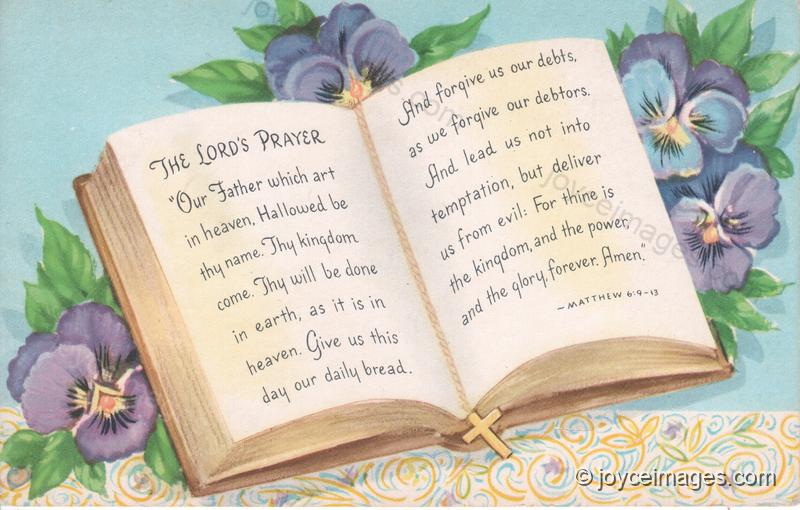 THE LORD'S PRAYER
"Our Father which art
in heaven, Hallowed be
thy name. Thy kingdom
come. Thy will be done
in earth, as it is in
heaven. Give us this
day our daily bread.
And forgive us our debts,
as we forgive our debtors.
And lead us not into
temptation, but deliver
us from evil: For thine is
the kingdom, and the power,
and the glory, forever. Amen."
~MATTHEW 6:9-13
joyceimages.com
joyceimages.com
© joyceimages.com